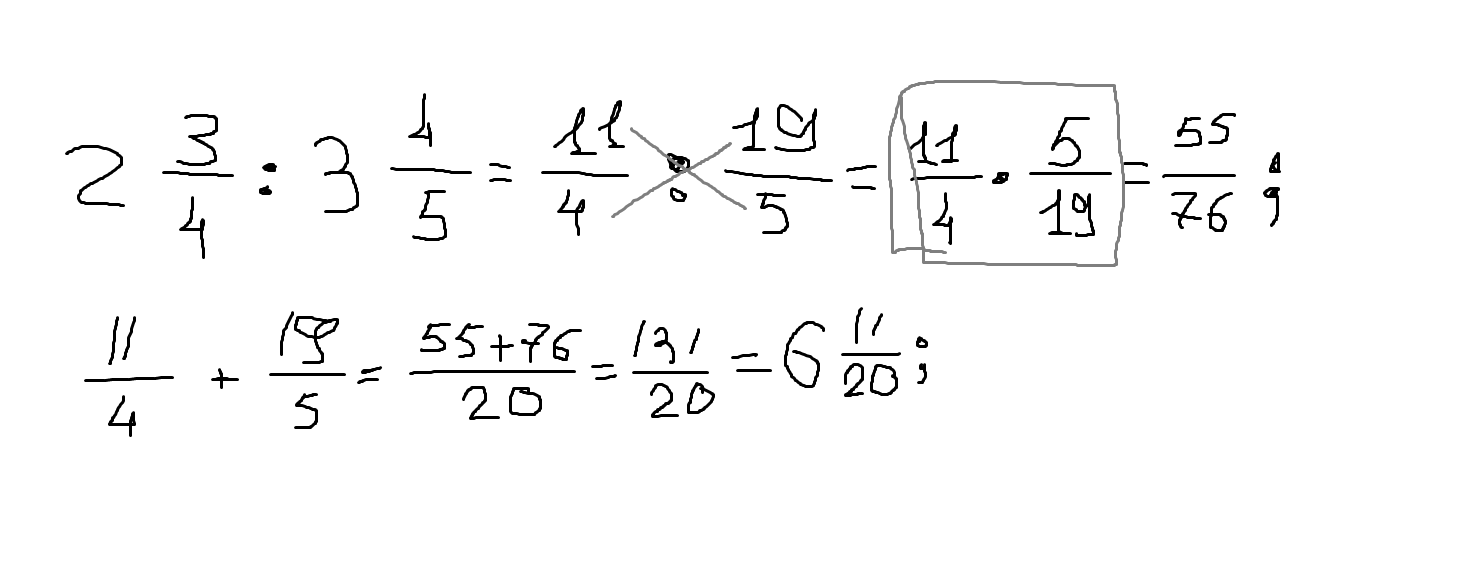 2 3/4 : 3 4/5 = 11/4 : 19/5 = 11/4 · 5/19 = 55/76 ;
11/4 + 19/5 = 55+76/20 = 131/20 = 6 11/20 ;